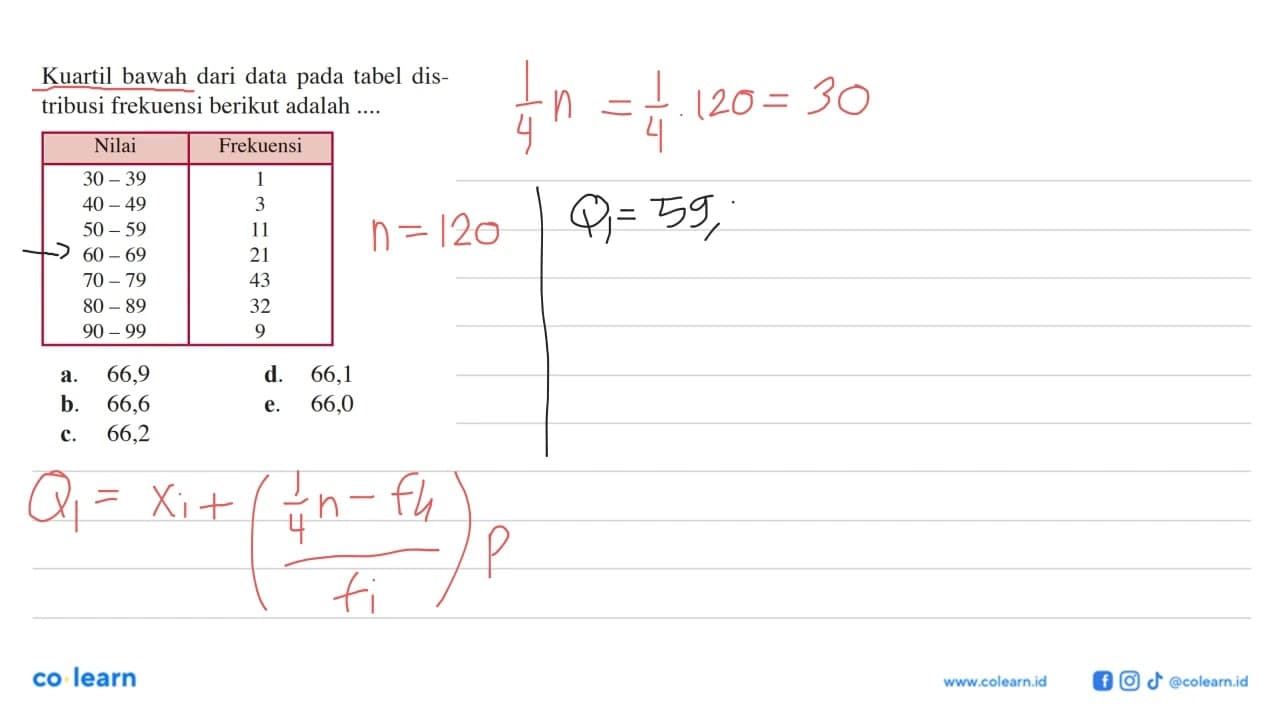 Kuartil bawah dari data pada tabel dis-
tribusi frekuensi berikut adalah ....
Nilai Frekuensi
30 – 39 1
40 – 49 3
50 – 59 11
60 – 69 21
70 – 79 43
80 – 89 32
90 – 99 9
a. 66,9 d. 66,1
b. 66,6 e. 66,0
c. 66,2
1/4 n = 1/4 . 120 = 30
n = 120
Q₁ = 59,
Q₁ = xᵢ + ( (1/4 n – fk) / fᵢ ) p
co learn
www.colearn.id
@colearn.id